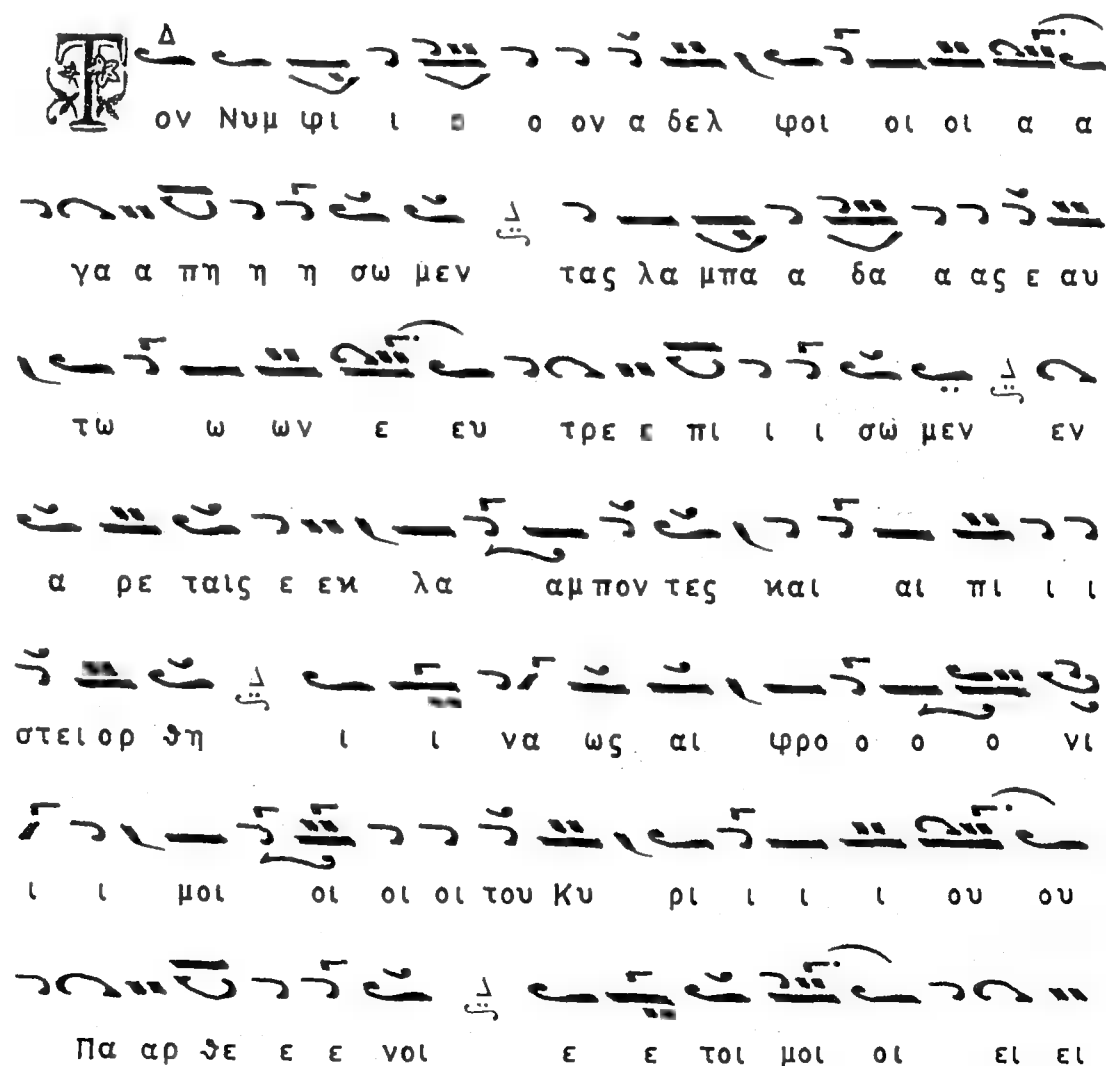 Τον Νυμ φι ι ο ο ον α δελ φοι οι οι α α
γα α πη η η σω μεν τας λα μπα α δα α ας ε αυ
τω ω ων ε ευ τρε ε πι ι ι σω μεν εν
α ρε ταις ε εκ λα αμ πον τες και αι πι ι ι
στει ορ θη ι ι να ως αι φρο ο ο ο νι
ι ι μοι οι οι οι του Κυ ρι ι ι ι ου ου
Πα αρ θε ε ε νοι ε ε τοι μοι οι ει ει